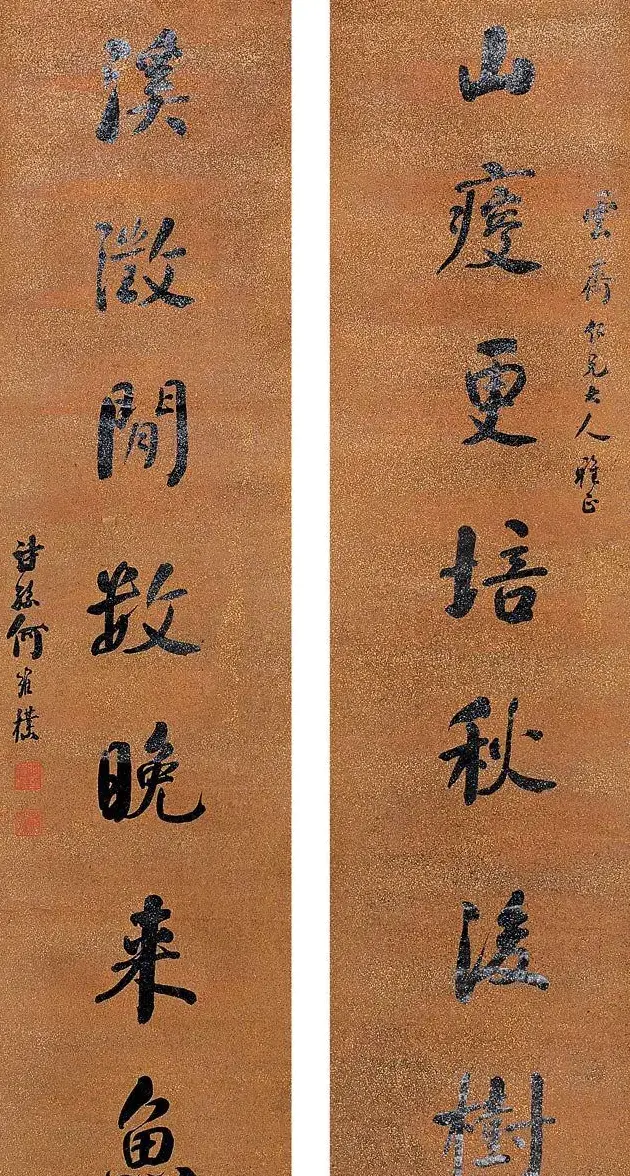 雲 仁兄大人雅正
山瘦更培秋後樹
溪澂閒数晚来魚
詩孫何維樸